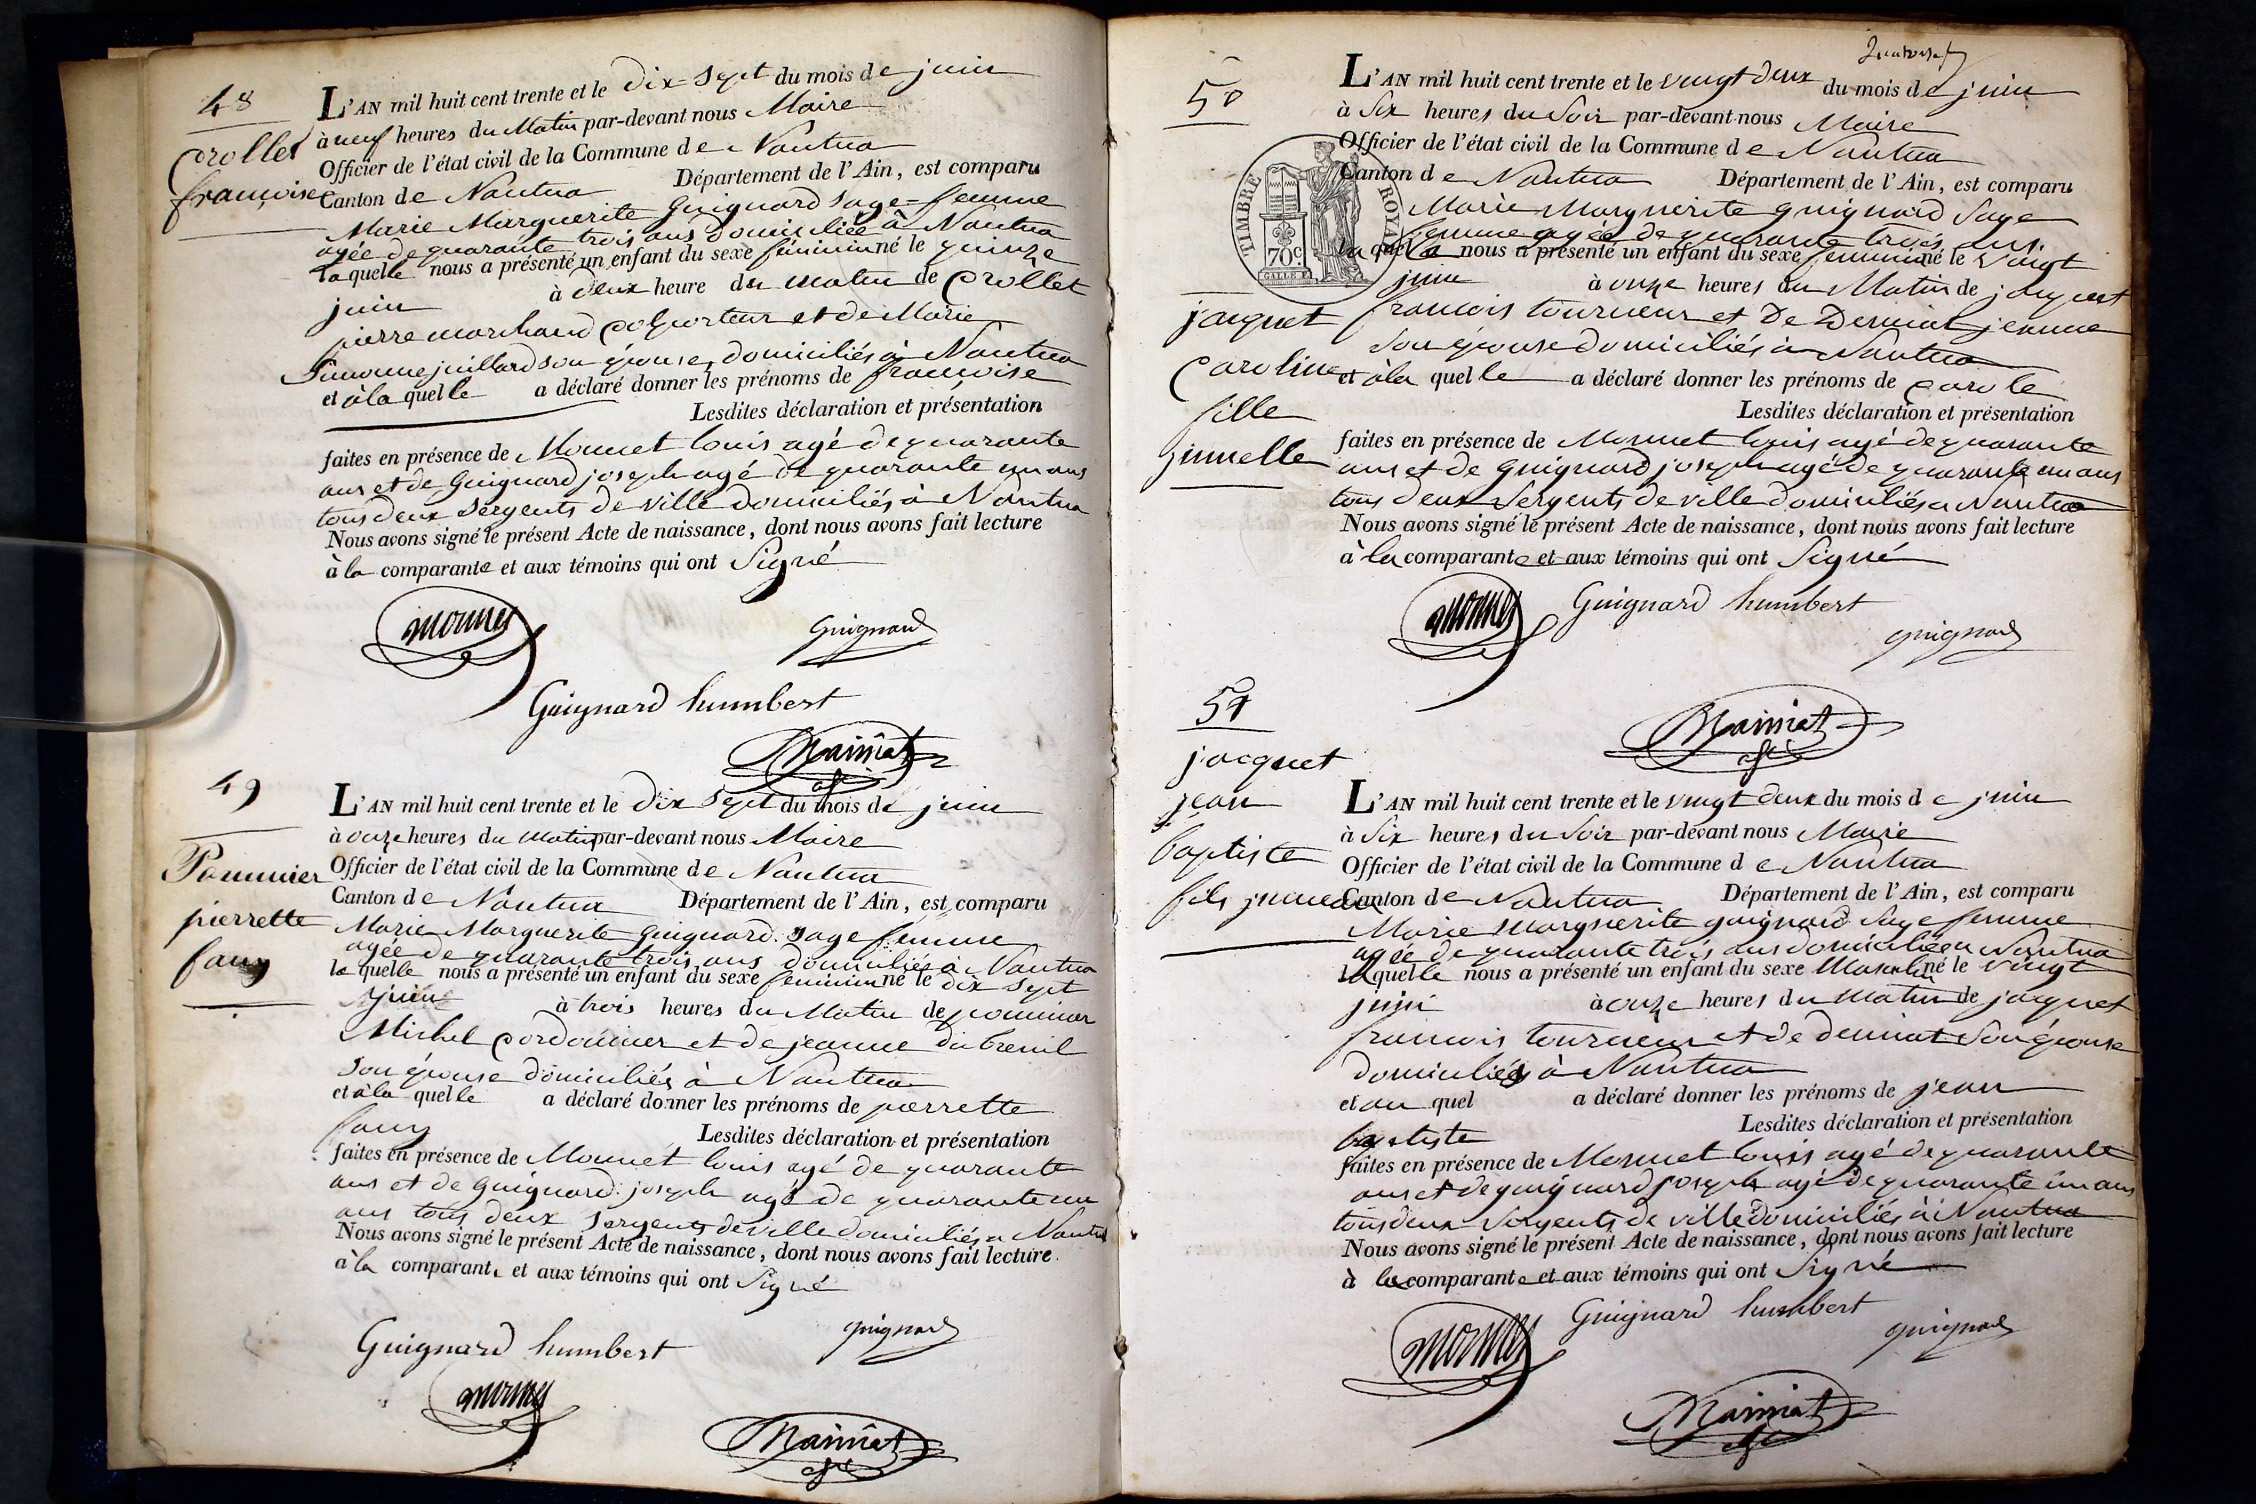 48
Crollet
françoise
L'AN mil huit cent trente et le dix-sept du mois de juin
à neuf heures du Matin par-devant nous Maire
Officier de l'état civil de la Commune de Nantua
Canton de Nantua Département de l'Ain, est comparu
Marie Marguerite Guignard sage-femme
agée de quarante trois ans domiciliée à Nantua
laquelle nous a présenté un enfant du sexe féminin né le quinze
juin à deux heure du matin de Crollet
pierre marchand colporteur et de Marie
juillard son épouse domiciliés à Nantua
et à la quelle a déclaré donner les prénoms de françoise
Lesdites déclaration et présentation
faites en présence de Monnet louis agé de quarante
ans et de Guignard joseph agé de quarante un ans
tous deux sergents de ville domiciliés à Nantua
Nous avons signé le présent Acte de naissance, dont nous avons fait lecture
à la comparante et aux témoins qui ont Signé
monnet
Guignard
Guignard humbert
49
Pommier
pierrette
fany
L'AN mil huit cent trente et le dix sept du mois de juin
à onze heures du matin par-devant nous Maire
Officier de l'état civil de la Commune de Nantua
Canton de Nantua Département de l'Ain, est comparu
Marie Marguerite Guignard sage femme
agée de quarante trois ans domiciliée à Nantua
la quelle nous a présenté un enfant du sexe féminin né le dix sept
juin à trois heures du Matin de pommier
Michel cordonnier et de jeanne dubreuil
son épouse domiciliés à Nantua
et à la quelle a déclaré donner les prénoms de pierrette
fany Lesdites déclaration et présentation
faites en présence de Monnet louis agé de quarante
ans et de guignard joseph agé de quarante un
ans tous deux sergents de ville domiciliés à Nantua
Nous avons signé le présent Acte de naissance, dont nous avons fait lecture
à la comparante et aux témoins qui ont Signé
Guignard humbert
guignard
monnet
50
jacquet
Caroline
fille
jumelle
TIMBRE ROYAL
70c
L'AN mil huit cent trente et le vingt deux du mois de juin
à Six heures du Soir par-devant nous Maire
Officier de l'état civil de la Commune de Nantua
Canton de Nantua Département de l'Ain, est comparu
Marie Marguerite guignard Sage
femme agée de quarante trois ans
la quelle nous a présenté un enfant du sexe féminin né le vingt
juin à onze heures du Matin de jacquet
françois tourneur et De jeanne
Son épouse domiciliés à Nantua
et à la quelle a déclaré donner les prénoms de
Lesdites déclaration et présentation
faites en présence de Monnet louis agé de quarante
ans et de guignard joseph agé de quarante un ans
tous deux Sergents de ville domiciliés à Nantua
Nous avons signé le présent Acte de naissance, dont nous avons fait lecture
à la comparante et aux témoins qui ont Signé
monnet
Guignard humbert
guignard
51
jacquet
jean
baptiste
fils jumeau
L'AN mil huit cent trente et le vingt deux du mois de juin
à Six heures du Soir par-devant nous Maire
Officier de l'état civil de la Commune de Nantua
Canton de Nantua Département de l'Ain, est comparu
Marie Marguerite guignard Sage femme
agée de quarante trois ans domiciliée à Nantua
laquelle nous a présenté un enfant du sexe Masculin né le vingt
juin à onze heures du Matin de jacquet
françois tourneur et de Son épouse
domiciliés à Nantua
et au quel a déclaré donner les prénoms de jean
baptiste Lesdites déclaration et présentation
faites en présence de Monnet louis agé de quarante
ans et de guignard joseph agé de quarante un ans
tous deux Sergents de ville domiciliés à Nantua
Nous avons signé le présent Acte de naissance, dont nous avons fait lecture
à la comparante et aux témoins qui ont Signé
monnet
Guignard humbert
guignard